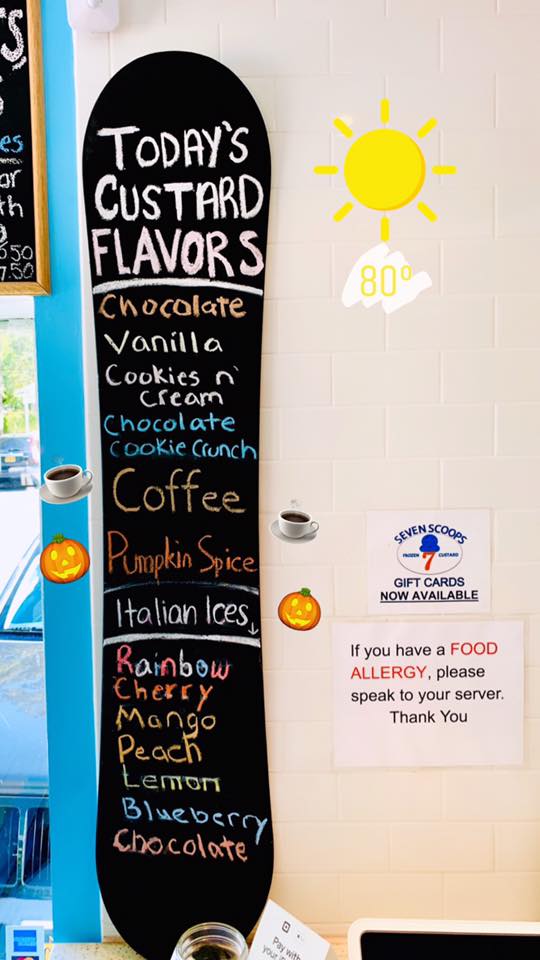 TODAY'S
CUSTARD
FLAVORS
Chocolate
Vanilla
Cookies n'
Cream
Chocolate
Cookie Crunch
Coffee
Pumpkin Spice
Italian Ices
Rainbow
Cherry
Mango
Peach
Lemon
Blueberry
Chocolate
80°
SEVEN SCOOPS
FROZEN 7 CUSTARD
GIFT CARDS
NOW AVAILABLE
If you have a FOOD
ALLERGY, please
speak to your server.
Thank You
Pay with
your
7.50